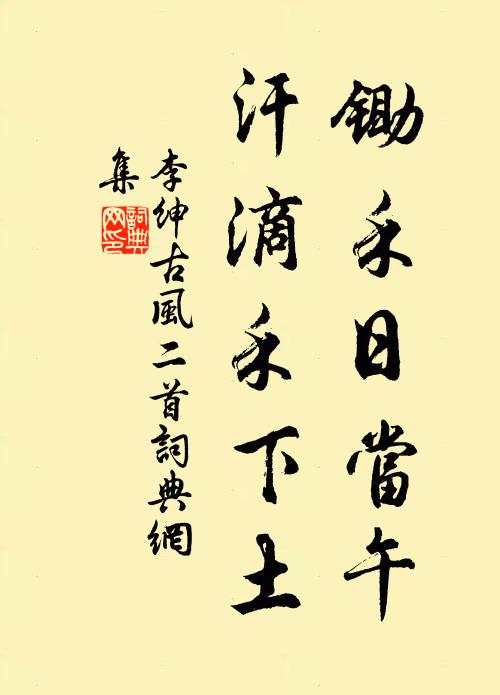 鋤禾日當午
汗滴禾下土
李紳古風二首詞典網
集
詞典
网印